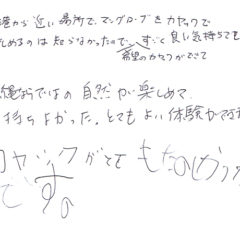 港から近い場所で、マングローブをカヤックで
しめるのは知らなかったので、すごく良い気持ちても
希望のカヤックができて
縄ならではの自然が楽しめて、
持ちよかった。とてもよい体験が
カヤックがとても たのしかった
です。